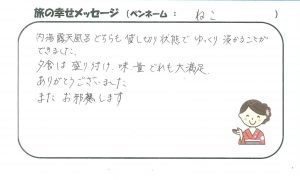 旅の幸せメッセージ（ペンネーム： ねこ ）
内湯露天風呂どちらも貸し切り状態でゆっくり浸かることが
できました。
夕食は盛り付け、味、量どれも大満足
ありがとうございました
またお邪魔します